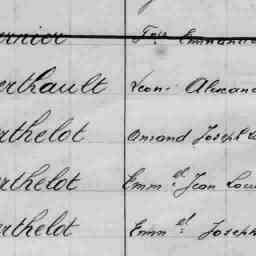 ernier Fçois Emmanue
erthault Léon Alexand
erthelot Amand Joseph L
erthelot Emm.el Jean Loui
erthelot Emm.el Joseph